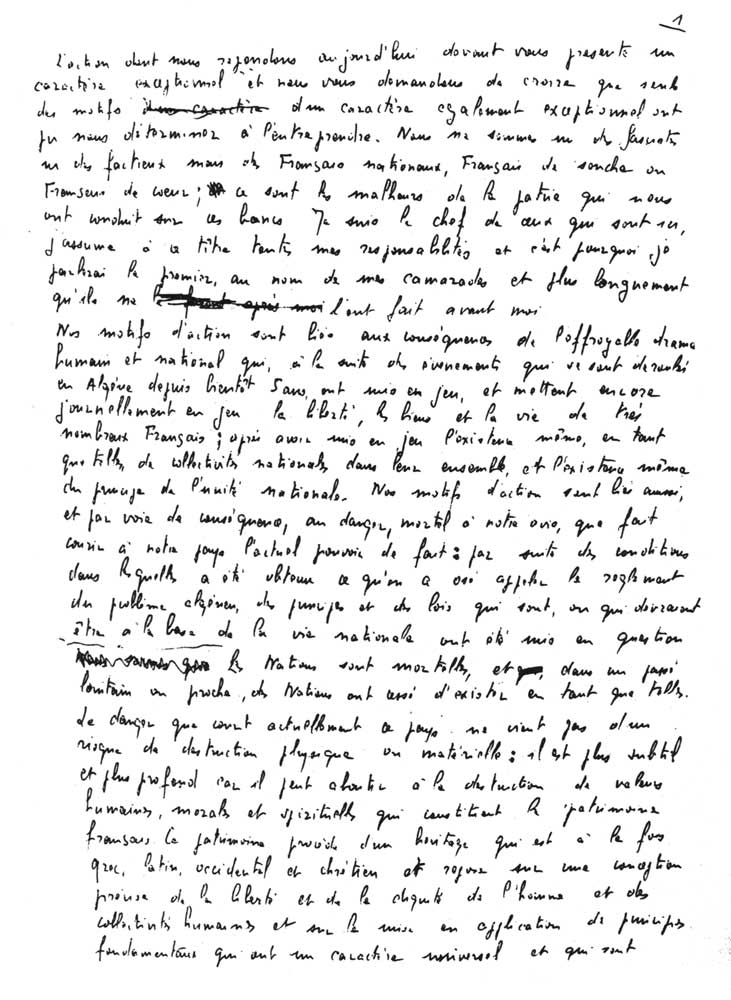 1
L'action dont nous répondons aujourd'hui devant vous présente un
caractère exceptionnel et nous vous demandons de croire que seuls
des motifs d'un caractère d'un caractère également exceptionnel ont
pu nous déterminer à l'entreprendre. Nous ne sommes ni des fascistes
ni des factieux mais des Français nationaux, Français de souche ou
Français de cœur ; ce sont les malheurs de la patrie qui nous
ont conduit sur ces bancs Je suis le chef de ceux qui sont ici,
j'assume à ce titre toutes mes responsabilités et c'est pourquoi je
parlerai le premier, au nom de mes camarades et plus longuement
qu'ils ne le après moi l'ont fait avant moi
Nos motifs d'action sont liés aux conséquences de l'effroyable drame
humain et national qui, à la suite des événements qui se sont déroulés
en Algérie depuis bientôt 8 ans, ont mis en jeu, et mettent encore
journellement en jeu la liberté, les biens et la vie de très
nombreux Français ; après avoir mis en jeu l'existence même, en tant
que telles, de collectivités nationales dans leur ensemble, et l'existence même
du principe de l'unité nationale. Nos motifs d'action sont liés aussi,
et par voie de conséquence, au danger, mortel à notre avis, que fait
courir à notre pays l'actuel pouvoir de fait : par suite des conditions
dans lesquelles a été obtenu ce qu'on a osé appeler le règlement
du problème algérien, des principes et des lois qui sont, ou qui devraient
être à la base de la vie nationale ont été mis en question
les Nations sont mortelles, et, dans un passé
lointain ou proche, des Nations ont cessé d'exister en tant que telles.
Le danger que court actuellement ce pays ne vient pas d'un
risque de destruction physique ou matérielle : il est plus subtil
et plus profond car il peut aboutir à la destruction de valeurs
humaines, morales et spirituelles qui constituent le patrimoine
français. Ce patrimoine procède d'un héritage qui est à la fois
grec, latin, occidental et chrétien et repose sur une conception
précise de la liberté et de la dignité de l'homme et des
collectivités humaines et sur la mise en application de principes
fondamentaux qui ont un caractère universel et qui sont